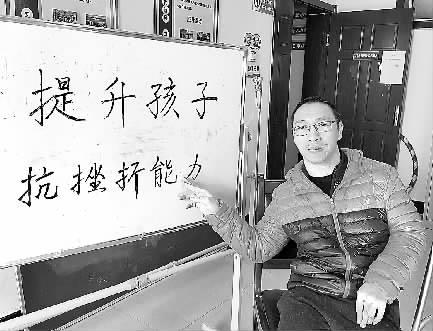 提升孩子
抗挫折能力